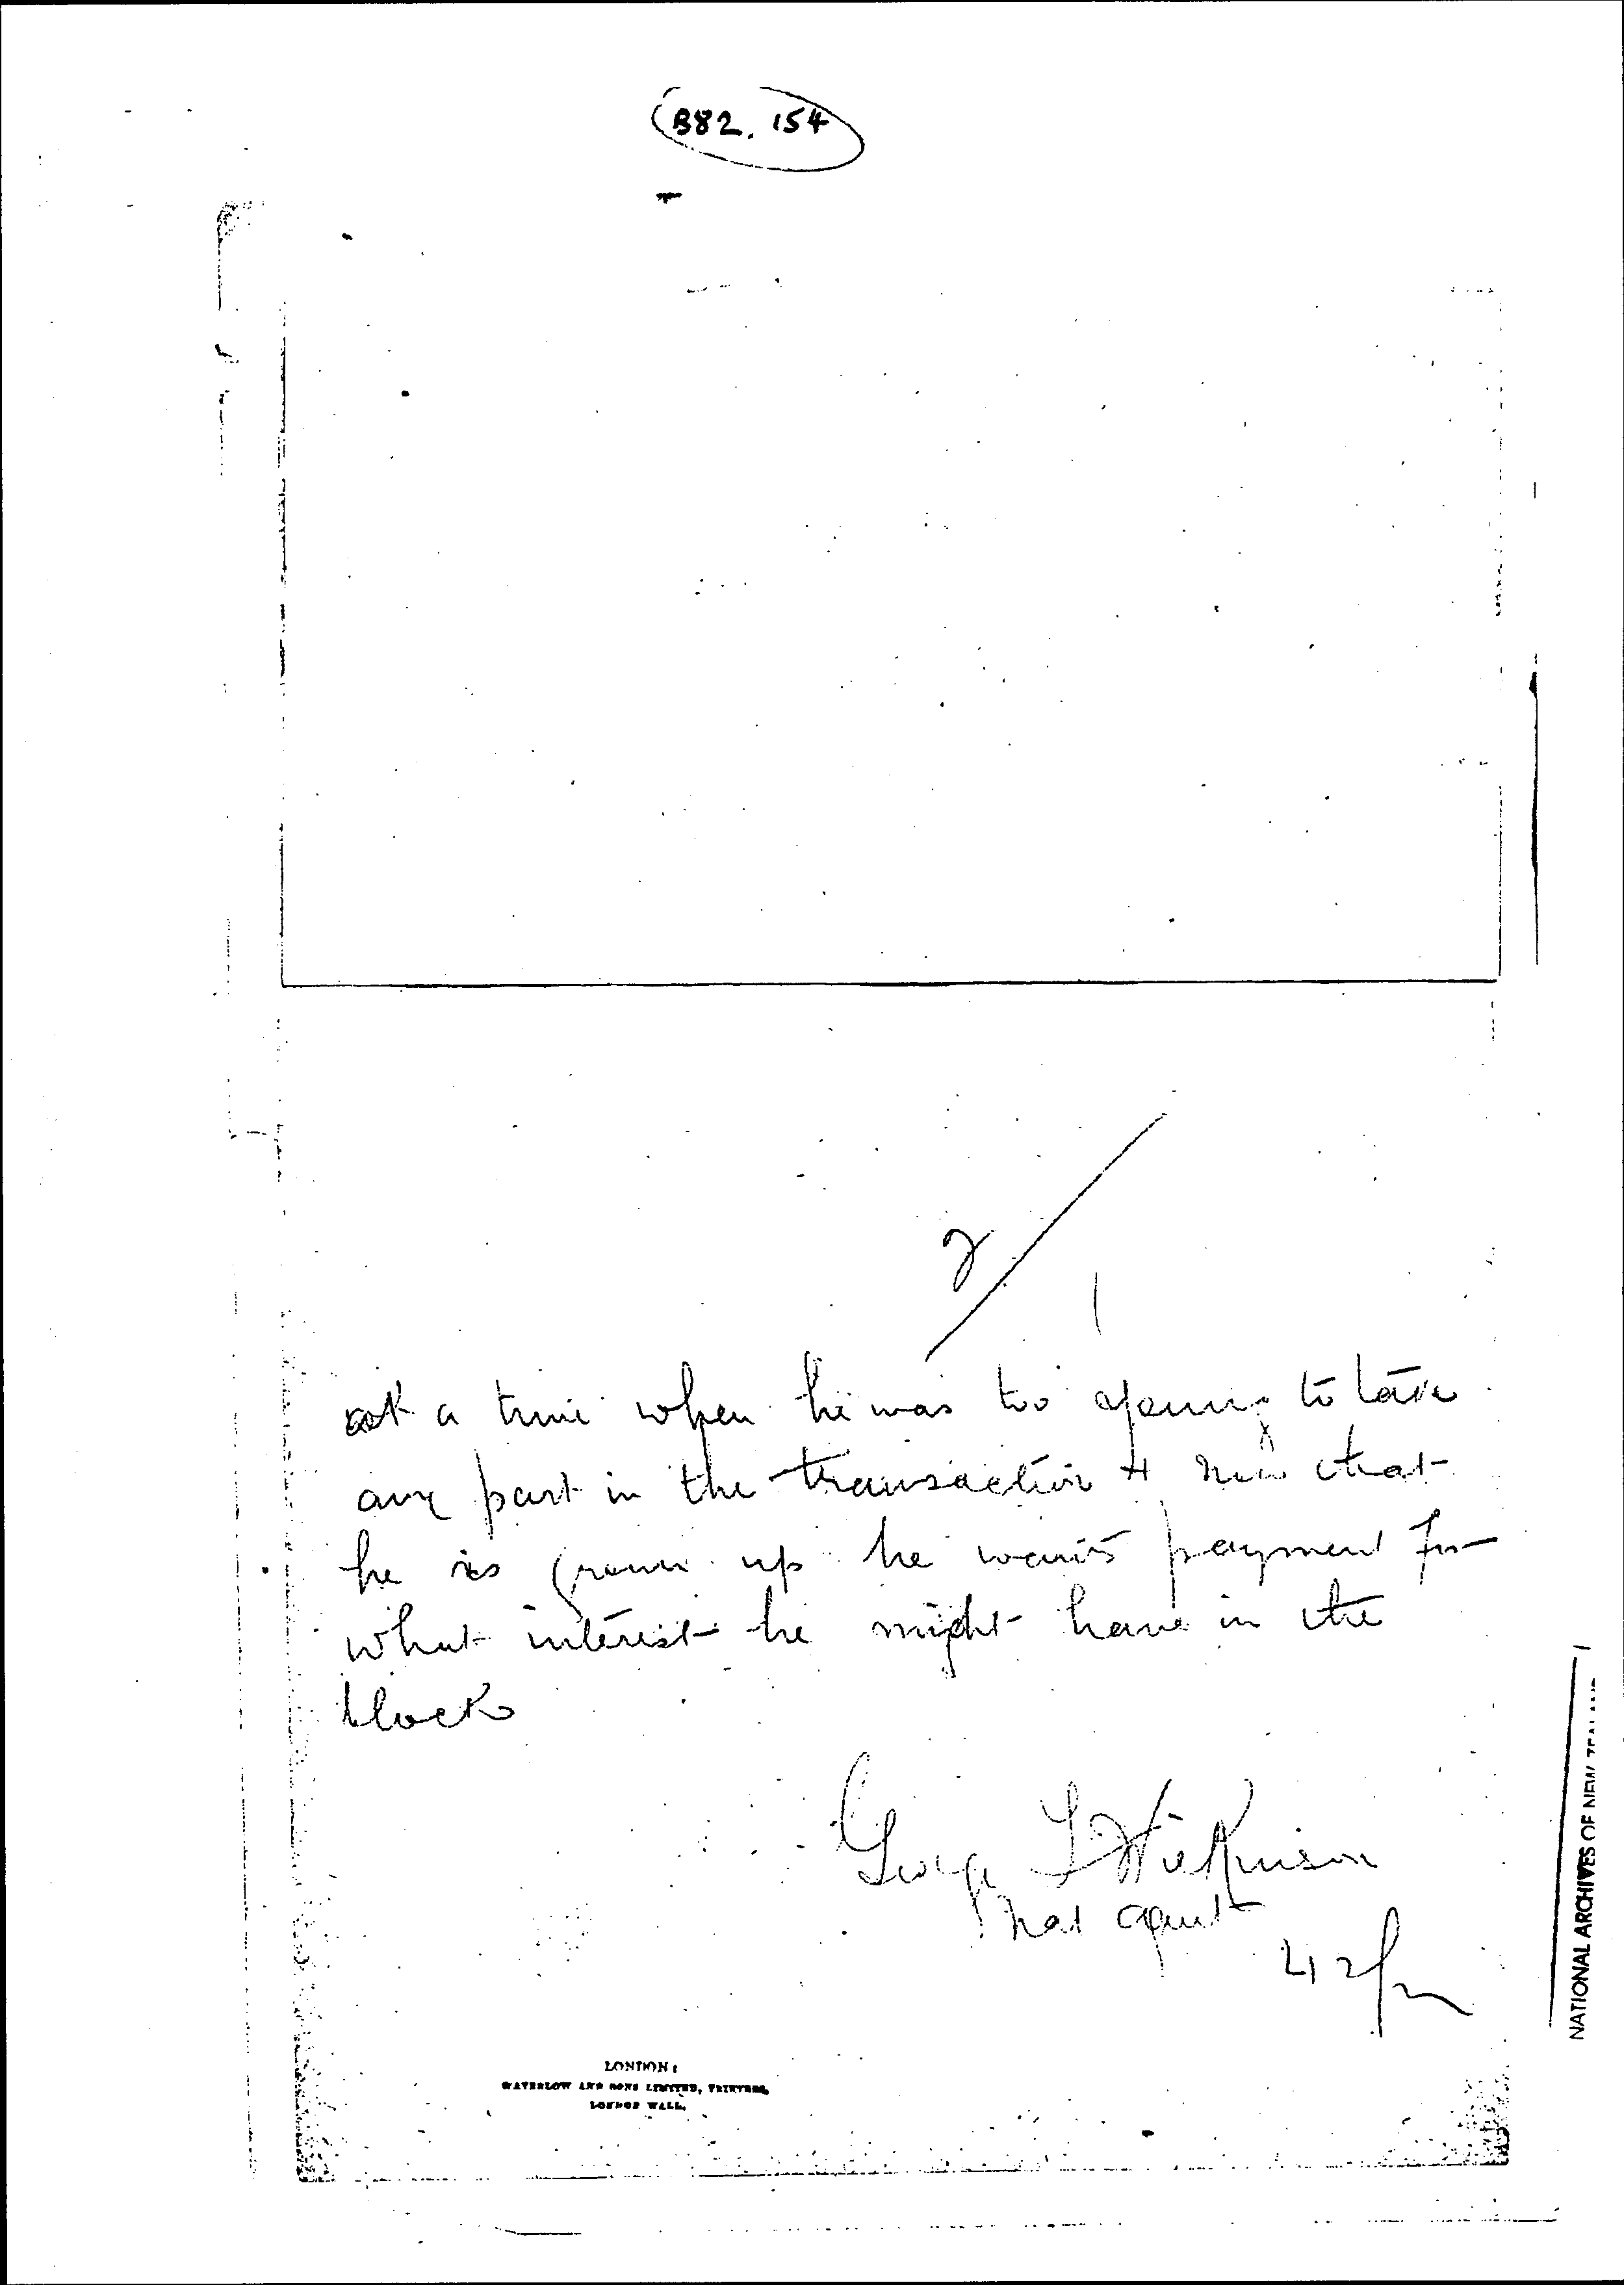 B82. 154
2
at a time when he was too young to take
any part in the transaction & now that
he is grown up he wants payment for
what interest he might have in the
block
George Wilkinson
Nat agent
LONDON:
WATERLOW AND SONS LIMITED, PRINTERS,
LONDON WALL.
NATIONAL ARCHIVES OF NEW ZEALAND